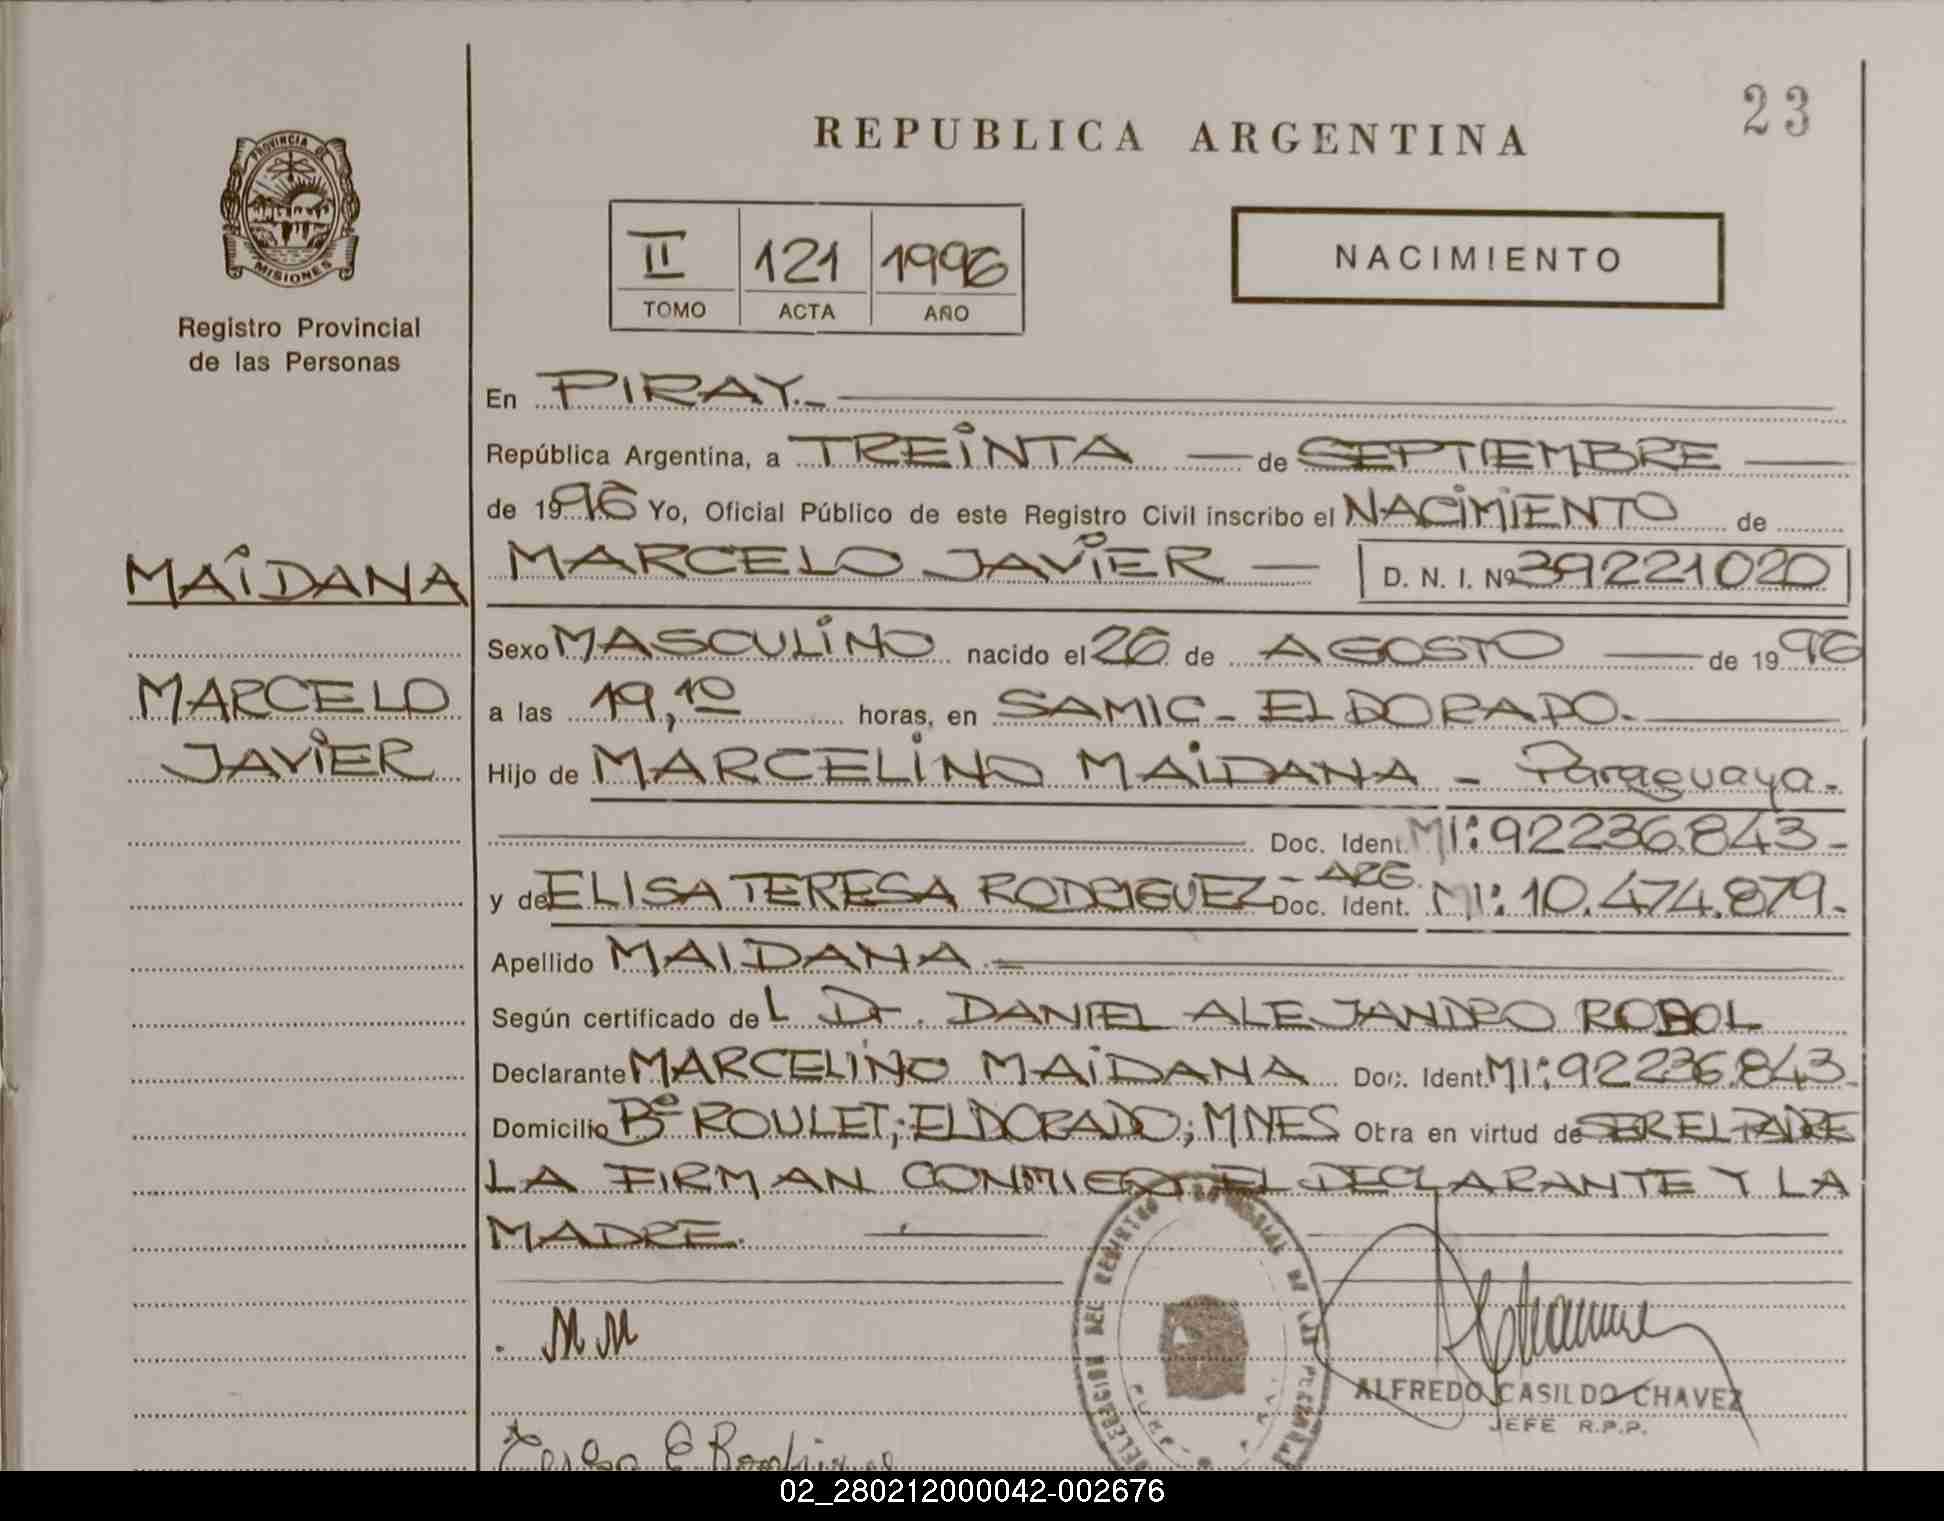 23
REPUBLICA ARGENTINA
PROVINCIA DE
MISIONES
Registro Provincial
de las Personas
II 121 1996
TOMO ACTA AÑO
NACIMIENTO
En PIRAY.-
República Argentina, a TREINTA — de SEPTIEMBRE —
de 1996 Yo, Oficial Público de este Registro Civil inscribo el NACIMIENTO de
MAIDANA
MARCELO JAVIER — D. N. I. Nº 39221020
Sexo MASCULINO nacido el 26 de AGOSTO — de 1996
MARCELO
a las 19,10 horas, en SAMIC - ELDORADO.-
JAVIER
Hijo de MARCELINO MAIDANA - Paraguaya -
Doc. Ident. MI: 92236.843-
y de ELISA TERESA RODRIGUEZ - ARG. Doc. Ident. MI: 10.474.879-
Apellido MAIDANA.-
Según certificado del Dr. DANIEL ALEJANDRO ROBOL
Declarante MARCELINO MAIDANA Doc. Ident. MI: 92236.843-
Domicilio Bº ROULET; ELDORADO; MNES Obra en virtud de SER EL PADRE
LA FIRMAN CONMIGO EL DECLARANTE Y LA
MADRE.
M M
ALFREDO CASILDO CHAVEZ
JEFE R.P.P.
02_280212000042-002676